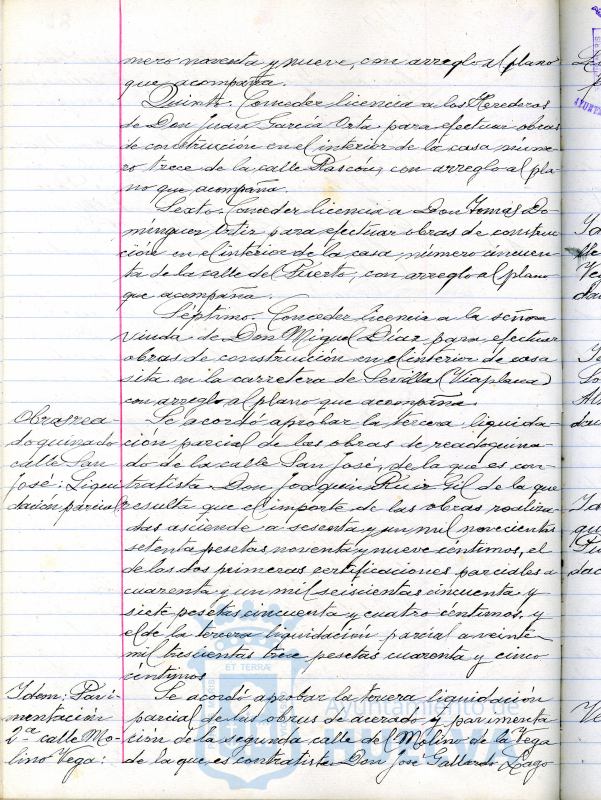 mero noventa y nueve, con arreglo al plano
que acompaña.
Quinto. Conceder licencia a los Herederos
de Don Juan García Orta para efectuar obras
de construcción en el interior de la casa núme-
ro trece de la calle Rascón, con arreglo al pla-
no que acompaña.
Sexto. Conceder licencia a Don Tomás Do-
minguez Ortiz para efectuar obras de construc-
ción en el interior de la casa número cincuen-
ta de la calle del Puerto, con arreglo al plano
que acompaña.
Séptimo. Conceder licencia a la señora
viuda de Don Miguel Díaz para efectuar
obras de construcción en el interior de casa
sita en la carretera de Sevilla (Viaplana)
con arreglo al plano que acompaña.
Obras rea
doquinado
calle San
José: Liqui
dación parcial
Se acordó aprobar la tercera liquida-
ción parcial de las obras de readoquina-
do de la calle San José, de la que es con-
tratista Don Joaquín Ruiz Gil de la que
resulta que el importe de las obras realiza-
das asciende a sesenta y un mil novecientas
setenta pesetas noventa y nueve céntimos, el
de las dos primeras certificaciones parciales a
cuarenta y un mil seiscientas cincuenta y
siete pesetas cincuenta y cuatro céntimos, y
el de la tercera liquidación parcial a veinte
mil trescientas trece pesetas cuarenta y cinco
céntimos
Idem: Pavi-
mentación
2ª calle Mo-
lino Vega:
Se acordó aprobar la liquidación
parcial de las obras de acerado y pavimenta
ción de la segunda calle del Molino de la Vega
de la que es contratista Don José Gallardo Lago
ET TERRÆ
Ayuntamiento de
HUELVA